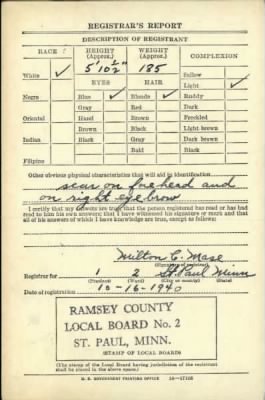 REGISTRAR'S REPORT
DESCRIPTION OF REGISTRANT
RACE HEIGHT (Approx.) WEIGHT (Approx.) COMPLEXION
5' 10½" 185
White ✓ Sallow
EYES HAIR Light ✓
Negro Blue ✓ Blonde ✓ Ruddy
Gray Red Dark
Oriental Hazel Brown Freckled
Brown Black Light brown
Indian Black Gray Dark brown
Bald Black
Filipino
Other obvious physical characteristics that will aid in identification
scar on forehead and
on right eye brow
I certify that my answers are true; that the person registered has read or has
had read to him his own answers; that I have witnessed his signature or mark and that
all of his answers of which I have knowledge are true, except as follows:
Milton C. Mase
(Signature of registrar)
Registrar for 1 2 St. Paul Minn
(Precinct) (Ward) (City or county) (State)
Date of registration 10-16-1940
RAMSEY COUNTY
LOCAL BOARD No. 2
ST. PAUL, MINN.
(STAMP OF LOCAL BOARD)
(The stamp of the Local Board having jurisdiction of the registrant
shall be placed in the above space.)
U. S. GOVERNMENT PRINTING OFFICE 16—17105